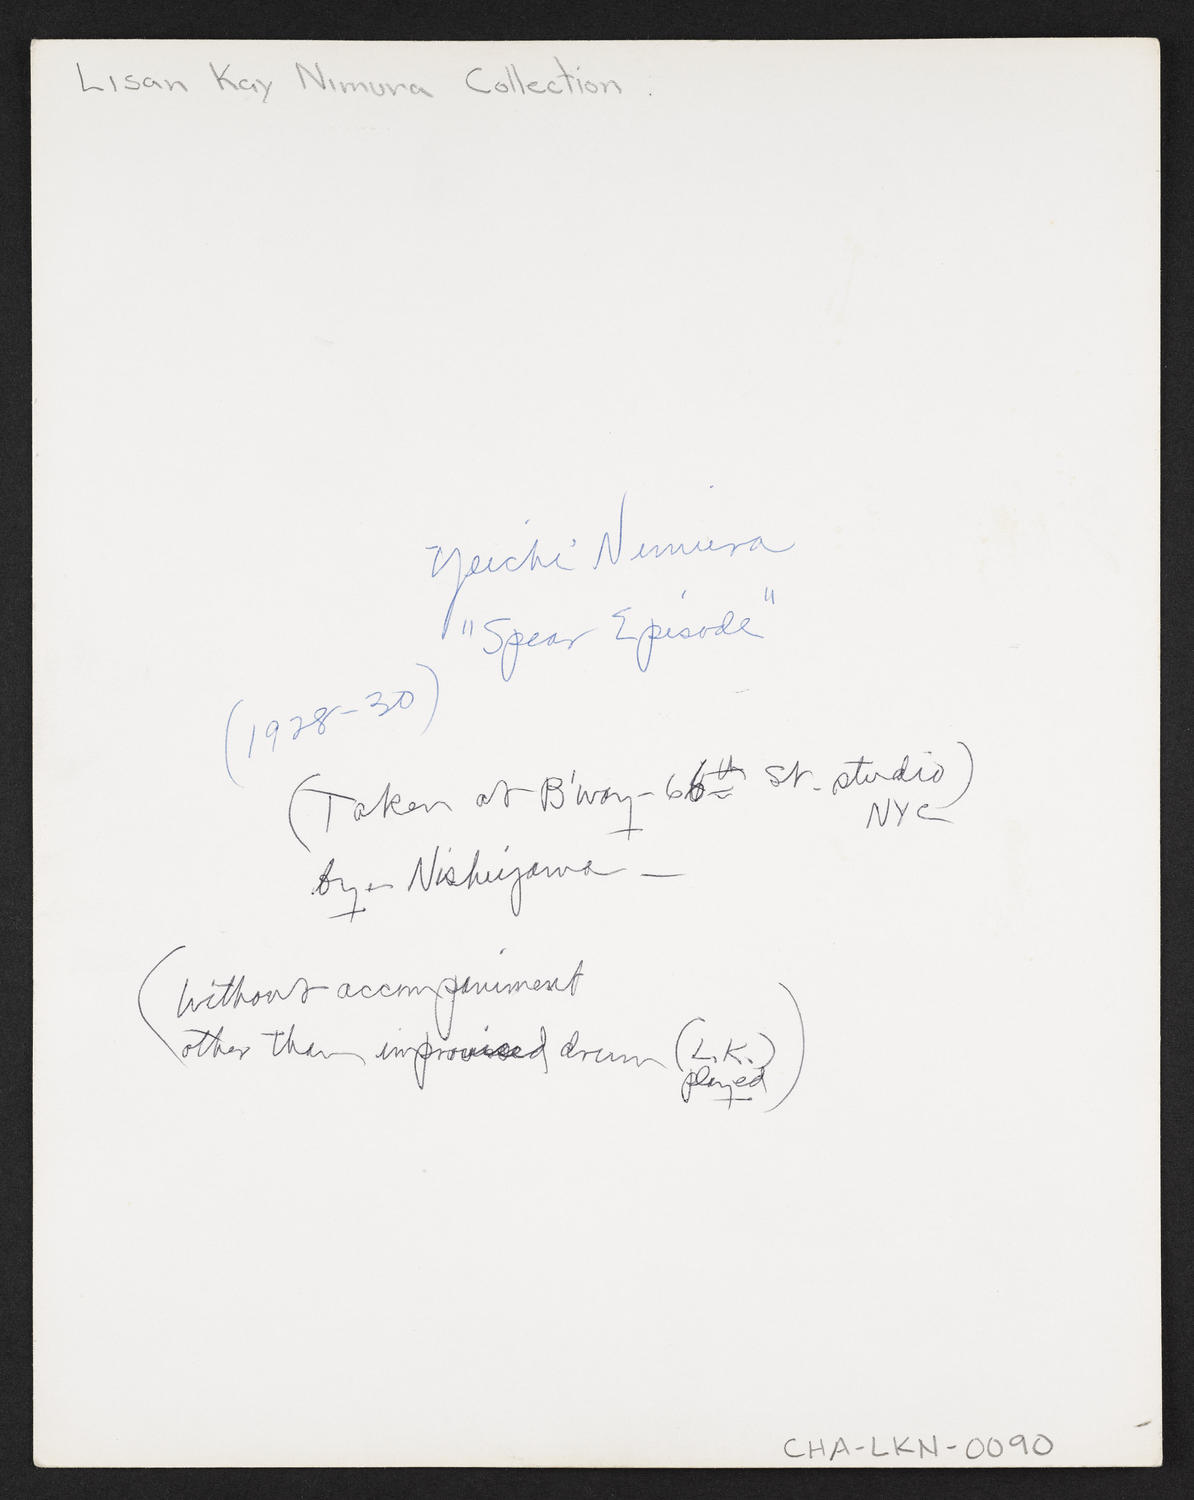 Lisan Kay Nimura Collection.
Yeichi Nimura
"Spear Episode"
(1928-30)
(Taken at B'way - 66th St. studio)
NYC
by - Nishiyama -
(without accompaniment
other than improvised drum (L.K.)
played)
CHA-LKN-0090